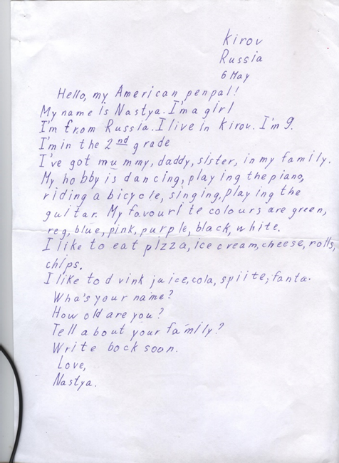 Kirov
Russia
6 May
Hello, my American penpal!
My name is Nastya. I'm a girl
I'm from Russia. I live in Kirov. I'm 9.
I'm in the 2nd grade
I've got mummy, daddy, sister, in my family.
My hobby is dancing, playing the piano,
riding a bicycle, singing, playing the
guitar. My favourite colours are green,
reg, blue, pink, purple, black, white.
I like to eat pizza, ice cream, cheese, rolls,
chips.
I like to drink juice, cola, spiite, fanta.
Who's your name?
How old are you?
Tell about your family?
Write bock soon.
Love,
Nastya.